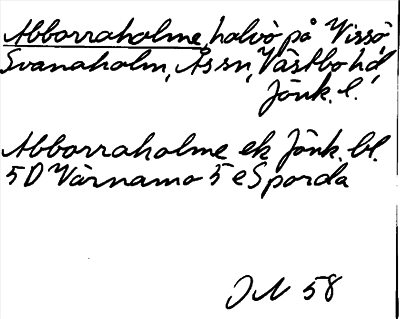 Abborraholme, halvö på Vissö,
Svanaholm, Ås sn, Västbo hd,
Jönk. l.
Abborraholme ek Jönk. bl.
5D Värnamo 5e Sporda
JN 58